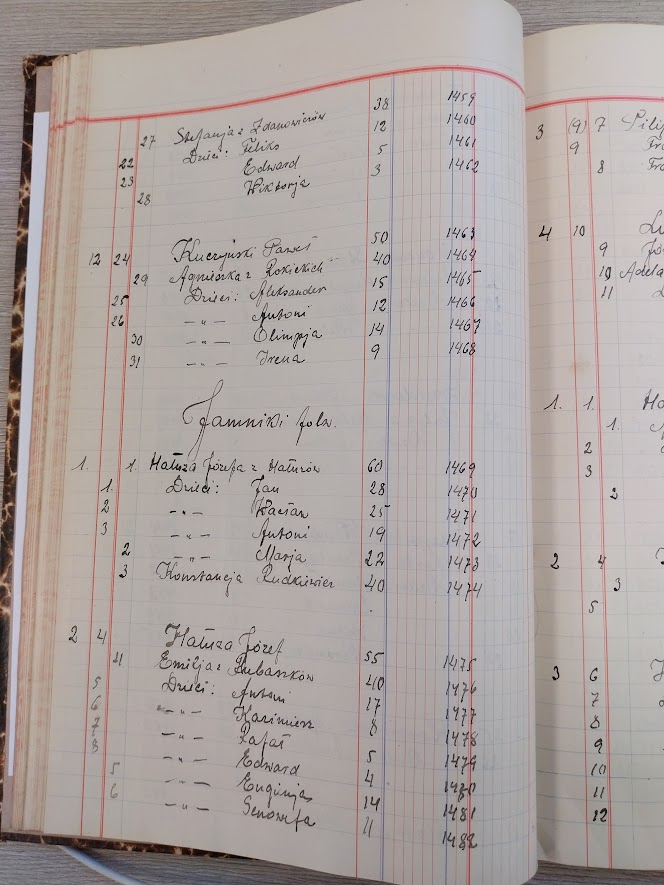 27 Stefanja z Zdanowiczów 38 1459
22 Dzieci: Feliks 12 1460
23 Edward 5 1461
28 Wiktorja 3 1462
12 24 Kuczyński Paweł 50 1463
29 Agnieszka z Rokickich 40 1464
25 Dzieci: Aleksander 15 1465
26 -„- Antoni 12 1466
30 -„- Olimpja 14 1467
31 -„- Irena 9 1468
Jamniki folw.
1. 1. Hałuza Józefa z Hałuzów 60 1469
1. Dzieci: Jan 28 1470
2 -„- Wacław 25 1471
3 -„- Antoni 19 1472
2 -„- Marja 22 1473
3 Konstancja Rudkiewicz 40 1474
2 4 Hałuza Józef 55 1475
4 Emilja z 40 1476
5 Dzieci: Antoni 17 1477
6 -„- Kazimierz 8 1478
7 -„- Rafał 5 1479
8 -„- Edward 4 1480
5 -„- Euginja 14 1481
6 -„- Genowefa 11 1482
3 (9) 7
9
8
4 10
9
10 Adela
11
1. 1.
1.
2
3
2
2 4
3
5
3 6
7
8
9
10
11
12